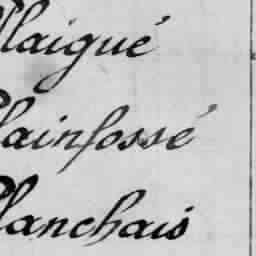 Plaigué
Plainfossé
Planchais